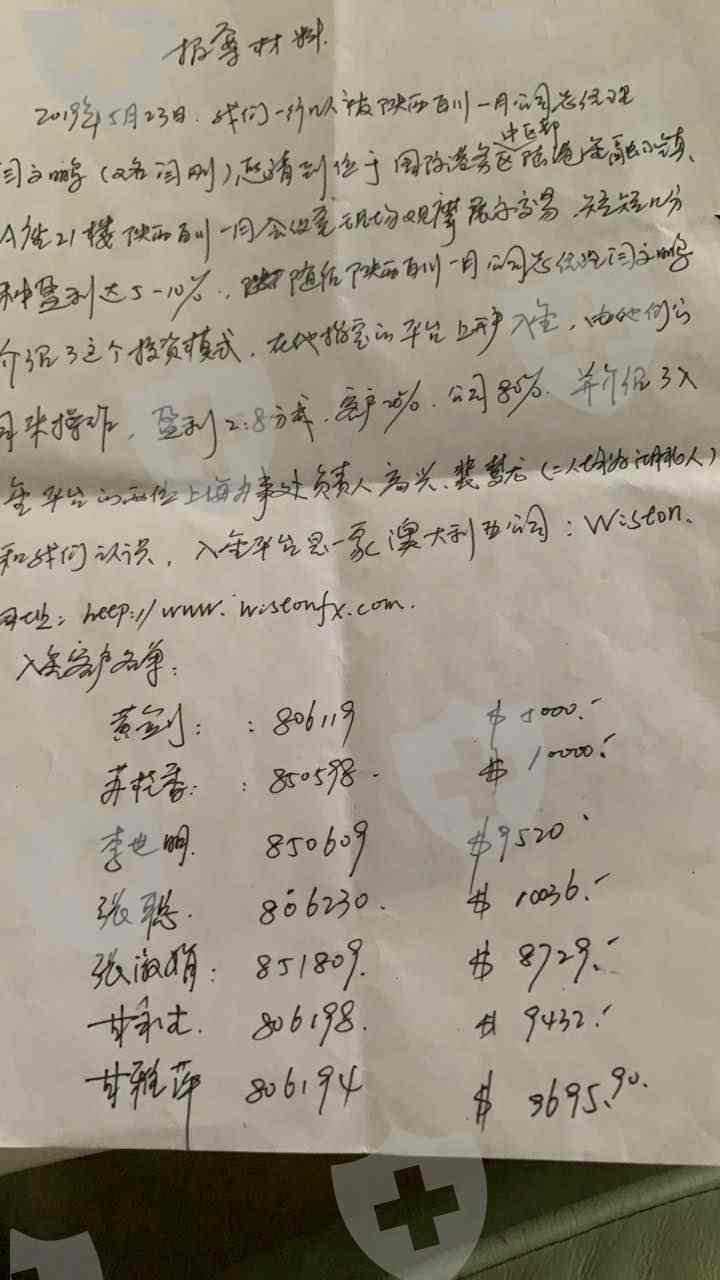 报案材料
2019年5月23日. 我们一行几人被陕西百川一月公司总经理
闫文鹏(又名闫刚),邀请到位于国际港务区陆港金融小镇、
中区部
A座21楼陕西百川一月会议室现场观摩展示交易.短短几分
种盈利达5-10%, 随后陕西百川一月公司总经理闫文鹏
介绍了这个投资模式,在他指定的平台上开户入金,由他们公
司来操作,盈利2:8分成,客户20%.公司80%.并介绍了入
金平台的两位上海办事处负责人高兴、裴(二人
和我们认识,入金平台是一家澳大利亚公司:Wiston.
网址:http://www.wistonfx.com.
入金客户名单:
黄剑: : 806119 $ 5000.-
苏 : 850598. $ 10000.-
李世明. 850609 $9520
张聪. 806230. $ 10036.-
张淑娟: 851809. $ 8729.-
甘 806198. $ 9432.-
甘雅萍 806194 $ 3695.90.